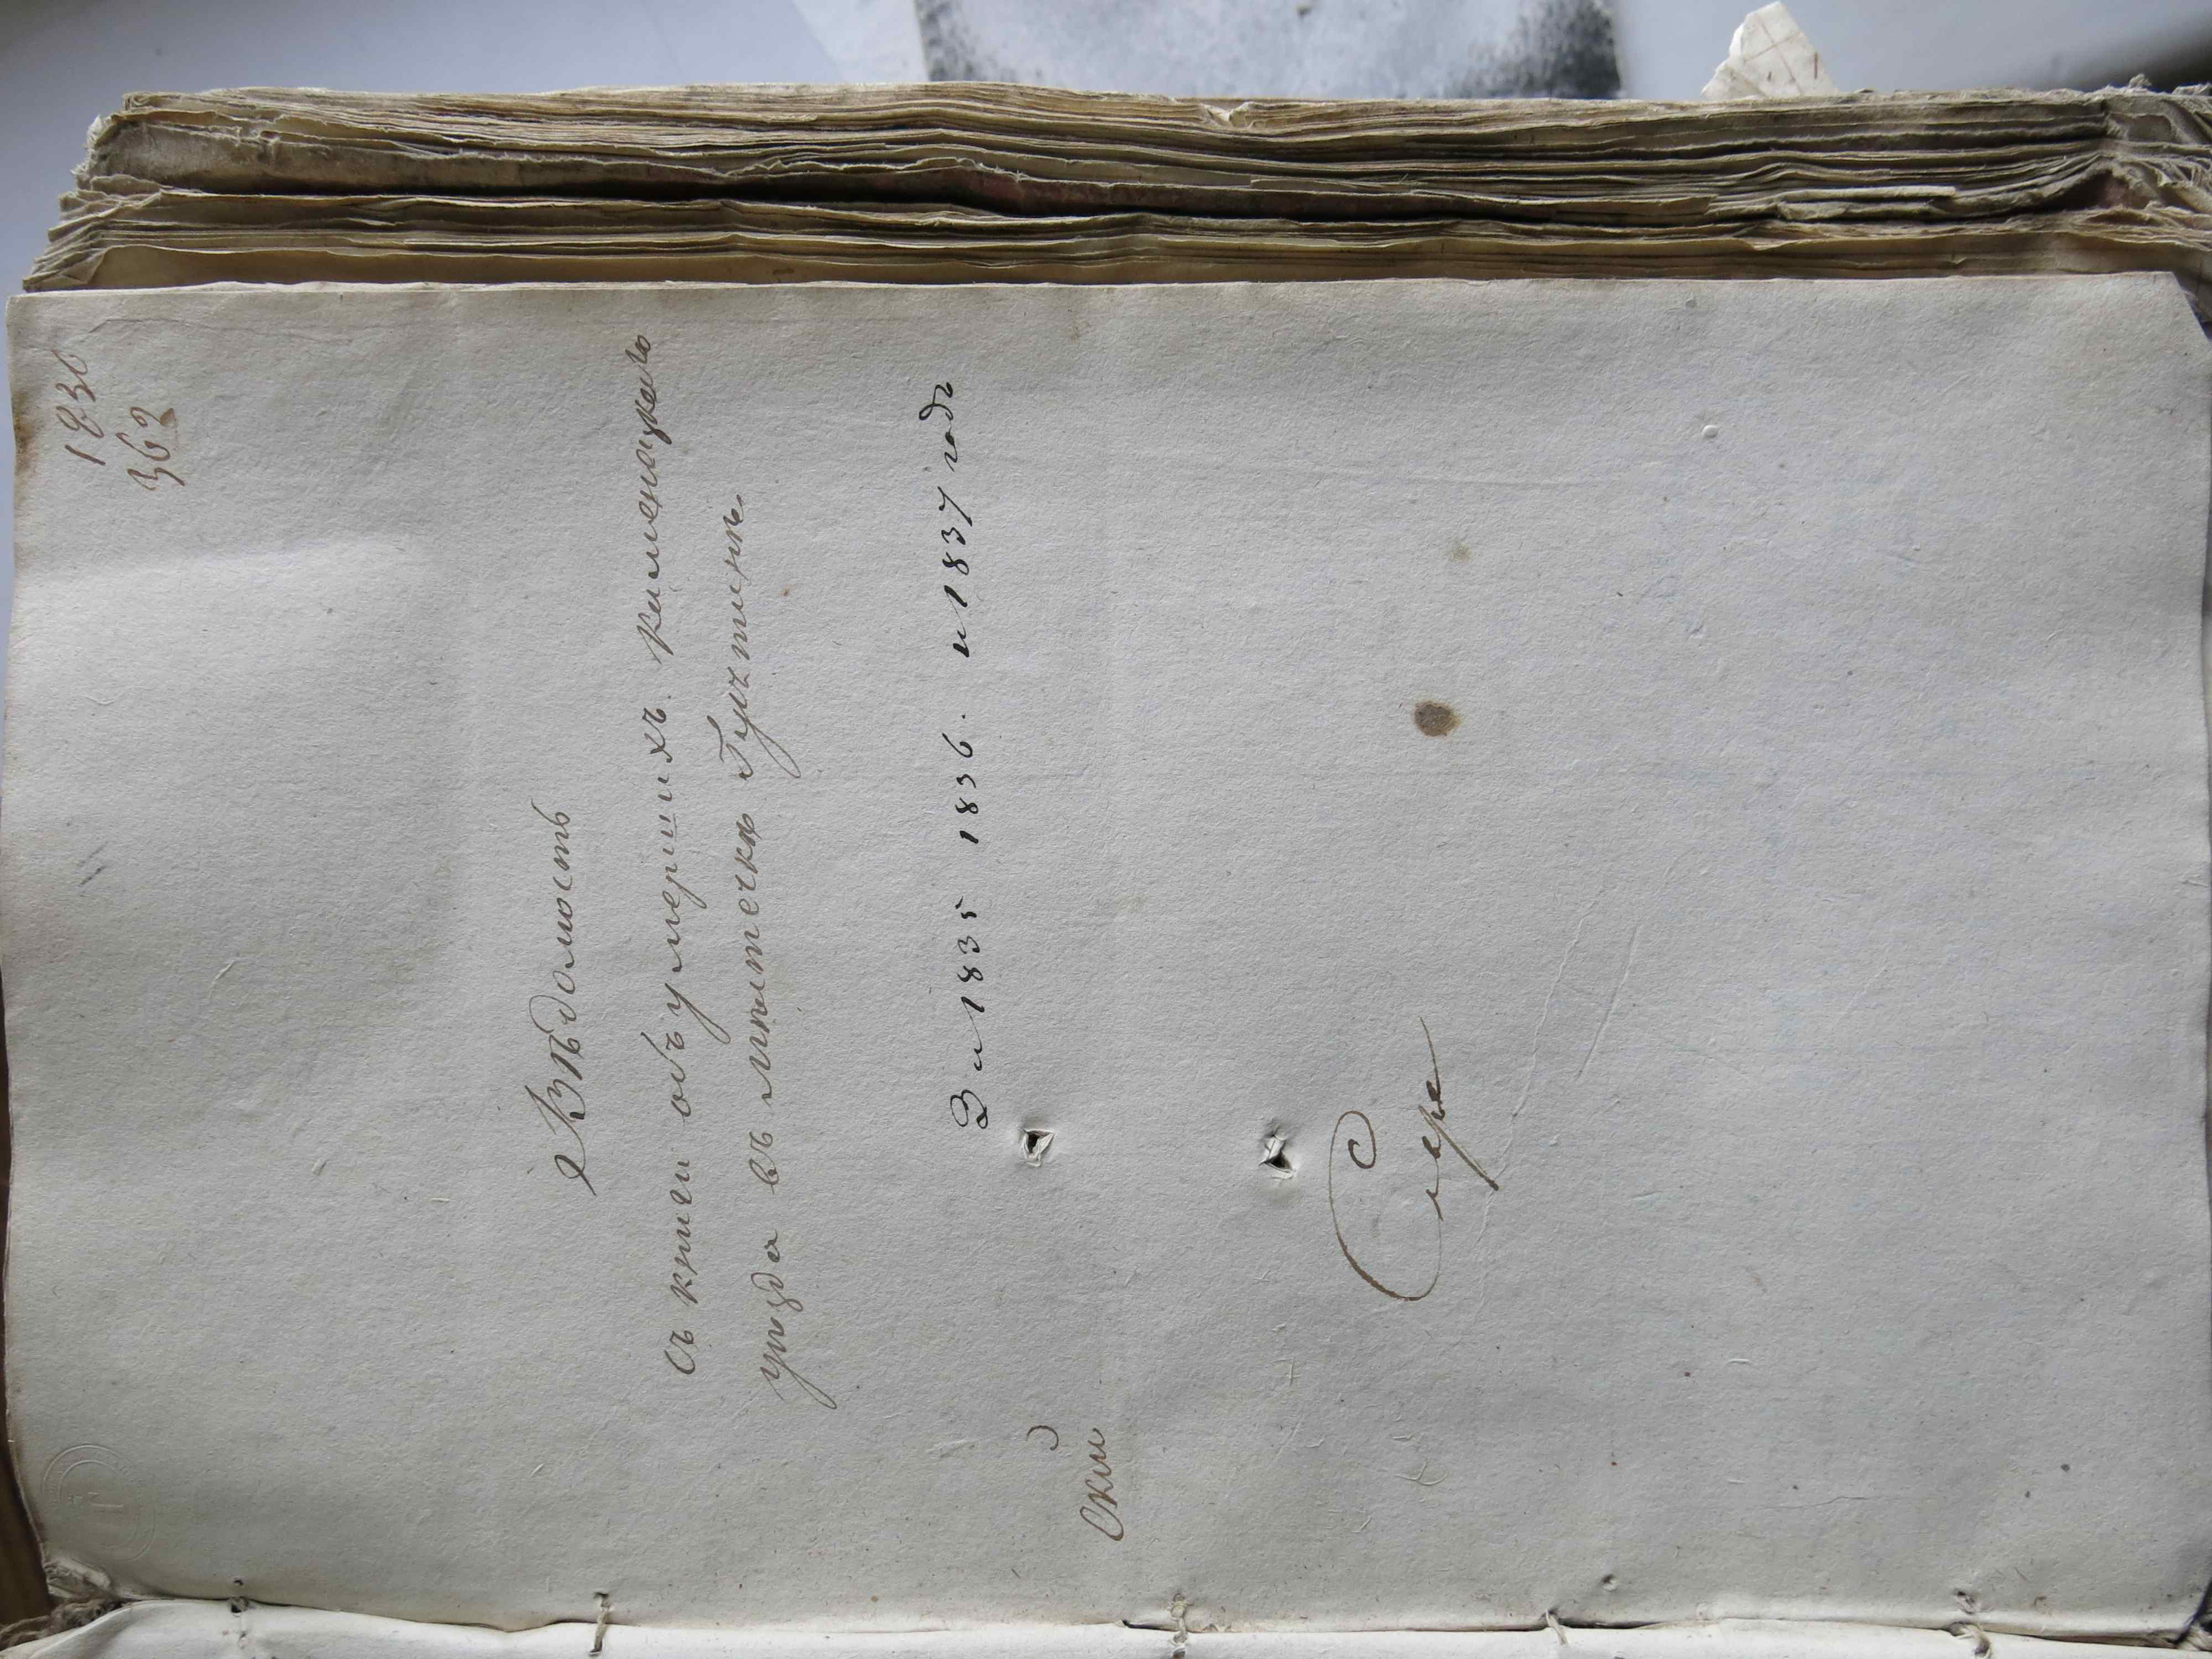 1836
362
Вѣдомость
съ книги объ умершихъ. каменецкаго
уѣзда въ мѣстечкѣ Гусятинѣ.
За 1835 1836. и 1837 годъ
ски